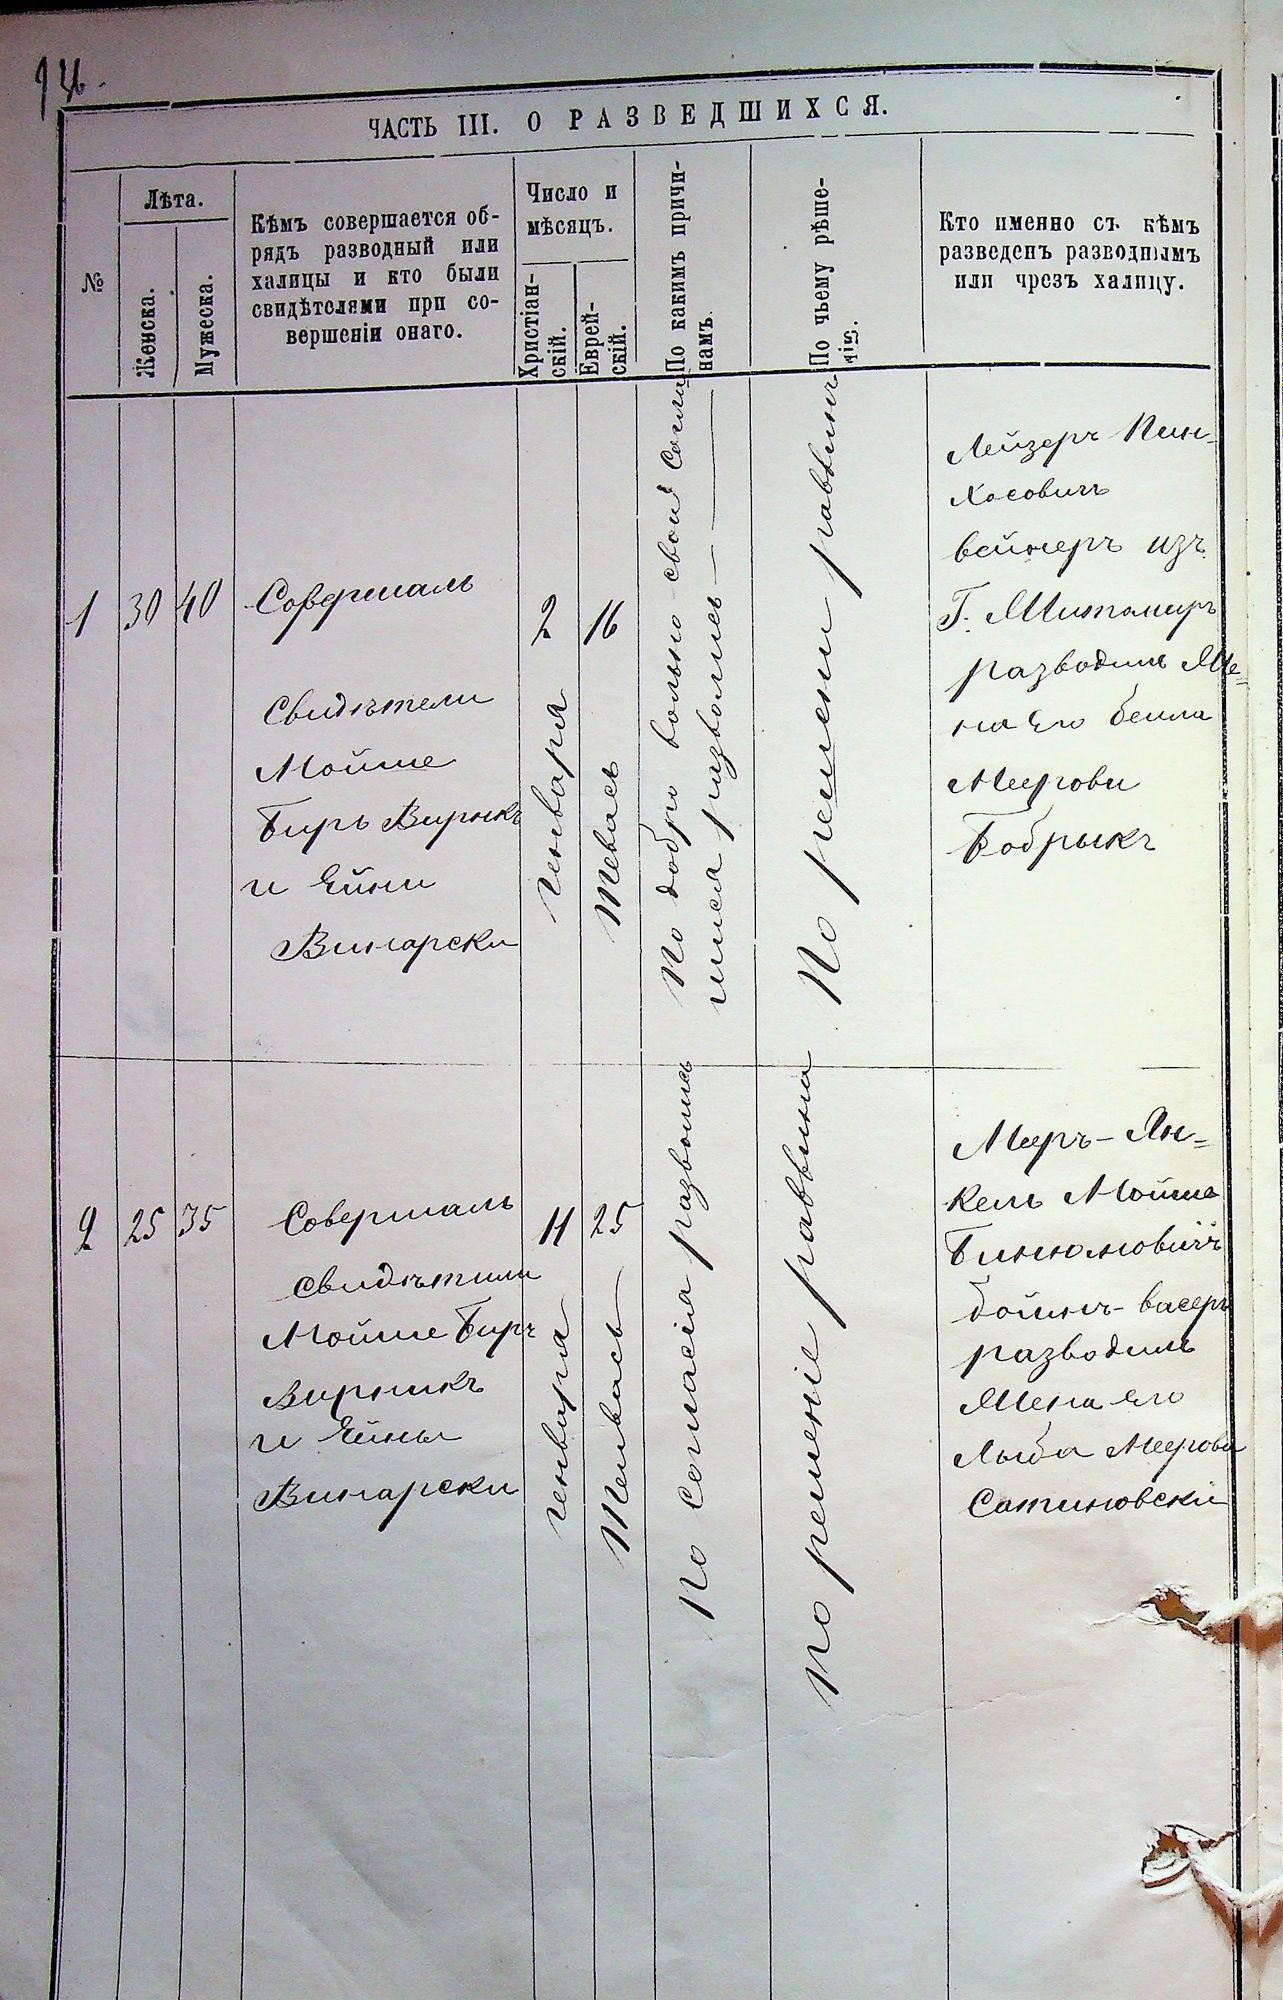 ЧАСТЬ III. О РАЗВЕДШИХСЯ.
№
Лѣта.
Женска.
Мужеска.
Кѣмъ совершается об-
рядъ разводный или
халицы и кто были
свидѣтелями при со-
вершеніи онаго.
Число и
мѣсяцъ.
Христіан-
скій.
Еврей-
скій.
По какимъ причи-
намъ.
По чьему рѣше-
нію.
Кто именно съ кѣмъ
разведенъ разводнымъ
или чрезъ халицу.
1
30
40
Совершалъ
свидѣтели
Мойше
Бирь Вирникъ
и Ейни
Винарски
2
генваря
16
Тевась
По добро вольно свои
лися разволись
По решени раввинъ
Лейзеръ Пин-
хосовичъ
вейнеръ изъ
Г. Житомиръ
разводилъ Же-
на Его беила
Меерови
Бобрыкъ
2
25
35
Совершалъ
свидѣтили
Мойше Биръ
Вирникъ
и Ейны
Винарски
11
генваря
25
По согласіа разволись
По решеніе раввина
Мееръ-Ян-
кель Мойше
бойнъ-васеръ
разводилъ
Жена Его
Лыба Меерова
Сатановскі